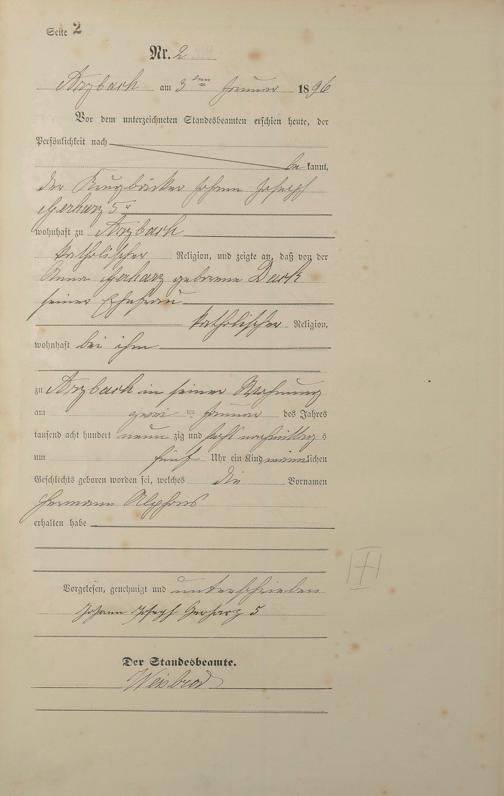 Seite 2
Nr. 2
Arzbach am 3ten Januar 1896
Vor dem unterzeichneten Standesbeamten erschien heute, der
Persönlichkeit nach
be kannt,
der Krugbäcker Johann Joseph
Gerharz 5r
wohnhaft zu Arzbach
katholischer Religion, und zeigte an, daß von der
Anna Gerharz geborene
seiner Ehefrau
katholischer Religion,
wohnhaft bei ihm
zu Arzbach in seiner Wohnung
am zwei ten Januar des Jahres
tausend acht hundert neun zig und sechs nachmittag s
um fünf Uhr ein Kind männlichen
Geschlechts geboren worden sei, welches die Vornamen
Hermann Alphons
erhalten habe
Vorgelesen, genehmigt und unterschrieben
Johann Joseph Gerharz 5
Der Standesbeamte.
Weisbrod